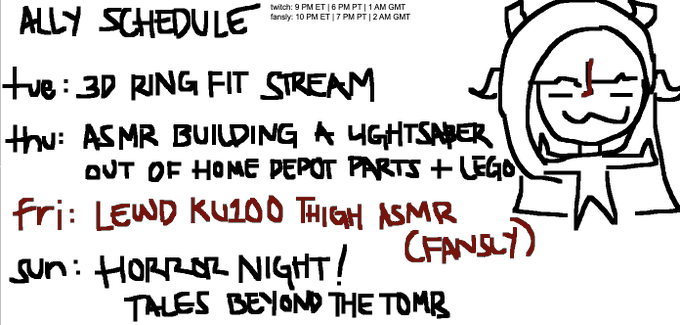 ALLY SCHEDULE
twitch: 9 PM ET | 6 PM PT | 1 AM GMT
fansly: 10 PM ET | 7 PM PT | 2 AM GMT
tue: 3D RING FIT STREAM
thu: ASMR BUILDING A LIGHTSABER
OUT OF HOME DEPOT PARTS + LEGO
fri: LEWD KU100 THIGH ASMR
(FANSLY)
sun: HORROR NIGHT!
TALES BEYOND THE TOMB